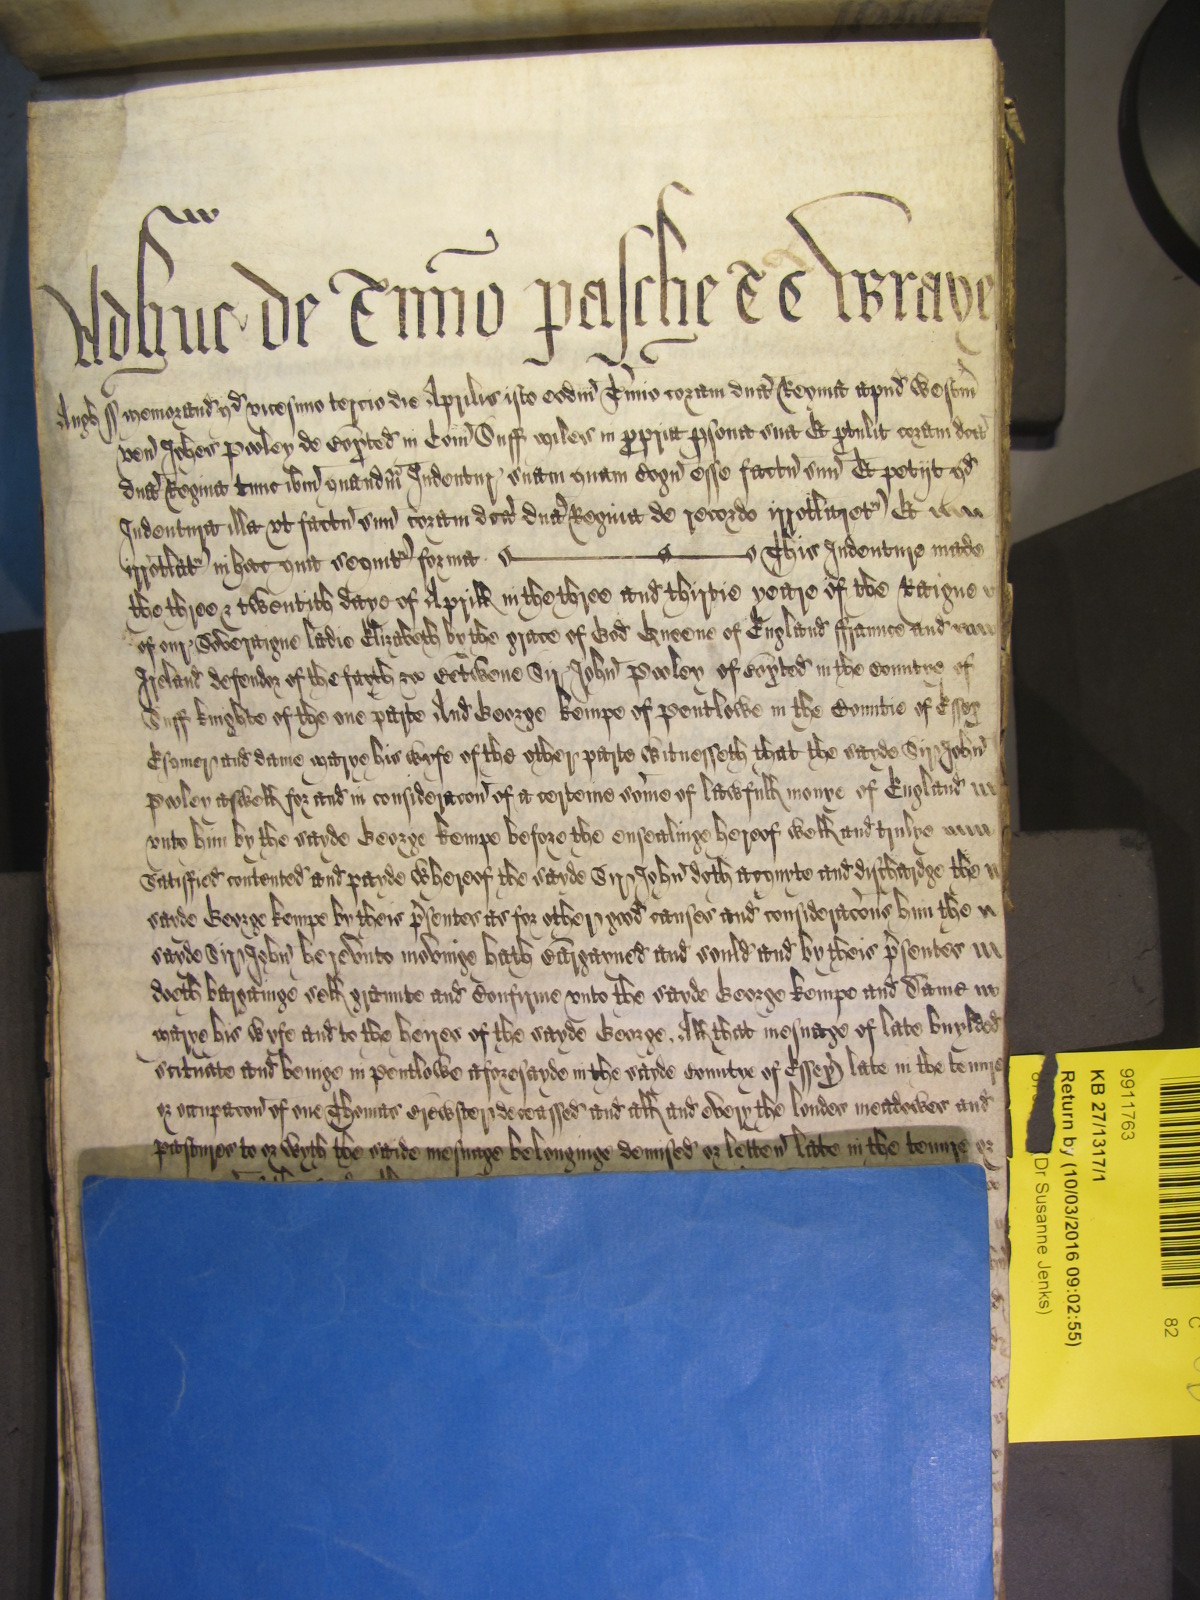 Adhuc de Tmino pasche Wraye
Angl ss memorand qd vicesimo tercio die Aprilis isto eodm Tmio coram dna Regina apud Westm
ven Johes Pooley de in Com Suff miles in ppria psona sua Et ptulit coram dca
dna Regina tunc ibm quandm Indentur suam quam cogn esse factu suu Et petijt qd
Indentura illa vt factu suu coram dca dna Regina de recordo irrotlaret Et
irrotlat in hac que sequit forma This Indenture made
the three & twentith daye of Aprill in the three and thirtie yeare of the Raigne
of our Soveraigne ladie Elizabeth by the grace of God Queene of England ffraunce and
Ireland defendor of the fayth &c Betwene Sir John Pooley of in the Countye of
Suff knighte of the one parte And George Kempe of Pentlowe in the Countie of Essex
Esquier and dame marye his wyfe of the other parte Witnesseth that the sayde Sir John
Pooley aswell for and in consideracon of a certeine some of lawfull monye of England
vnto him by the sayde George Kempe before the ensealinge hereof well and trulye
Satisfied contented and payde whereof the sayde Sir John doth acquyte and dischardge the
sayde George Kempe by theis psentes as for other good causes and consideracons him the
sayde Sir John herevnto movinge hath Bargayned and sould and by theis psentes
doeth bargainge sell graunte and Confirme vnto the sayde George Kempe and Dame
marye his wyfe and to the heires of the sayde George. All that mesuage of late buylded
scituate and beinge in Pentlowe aforesayde in the sayde Countye of Essex late in the tenure
or occupacon of one Thomas Brewster deceassed and all and every the londes meadowes and
pastures to or wyth the saide mesuage belonginge demised or letten late in the tenure or
9911763
KB 27/1317/1
Return by (10/03/2016 09:02:55)
Dr Susanne Jenks)
82